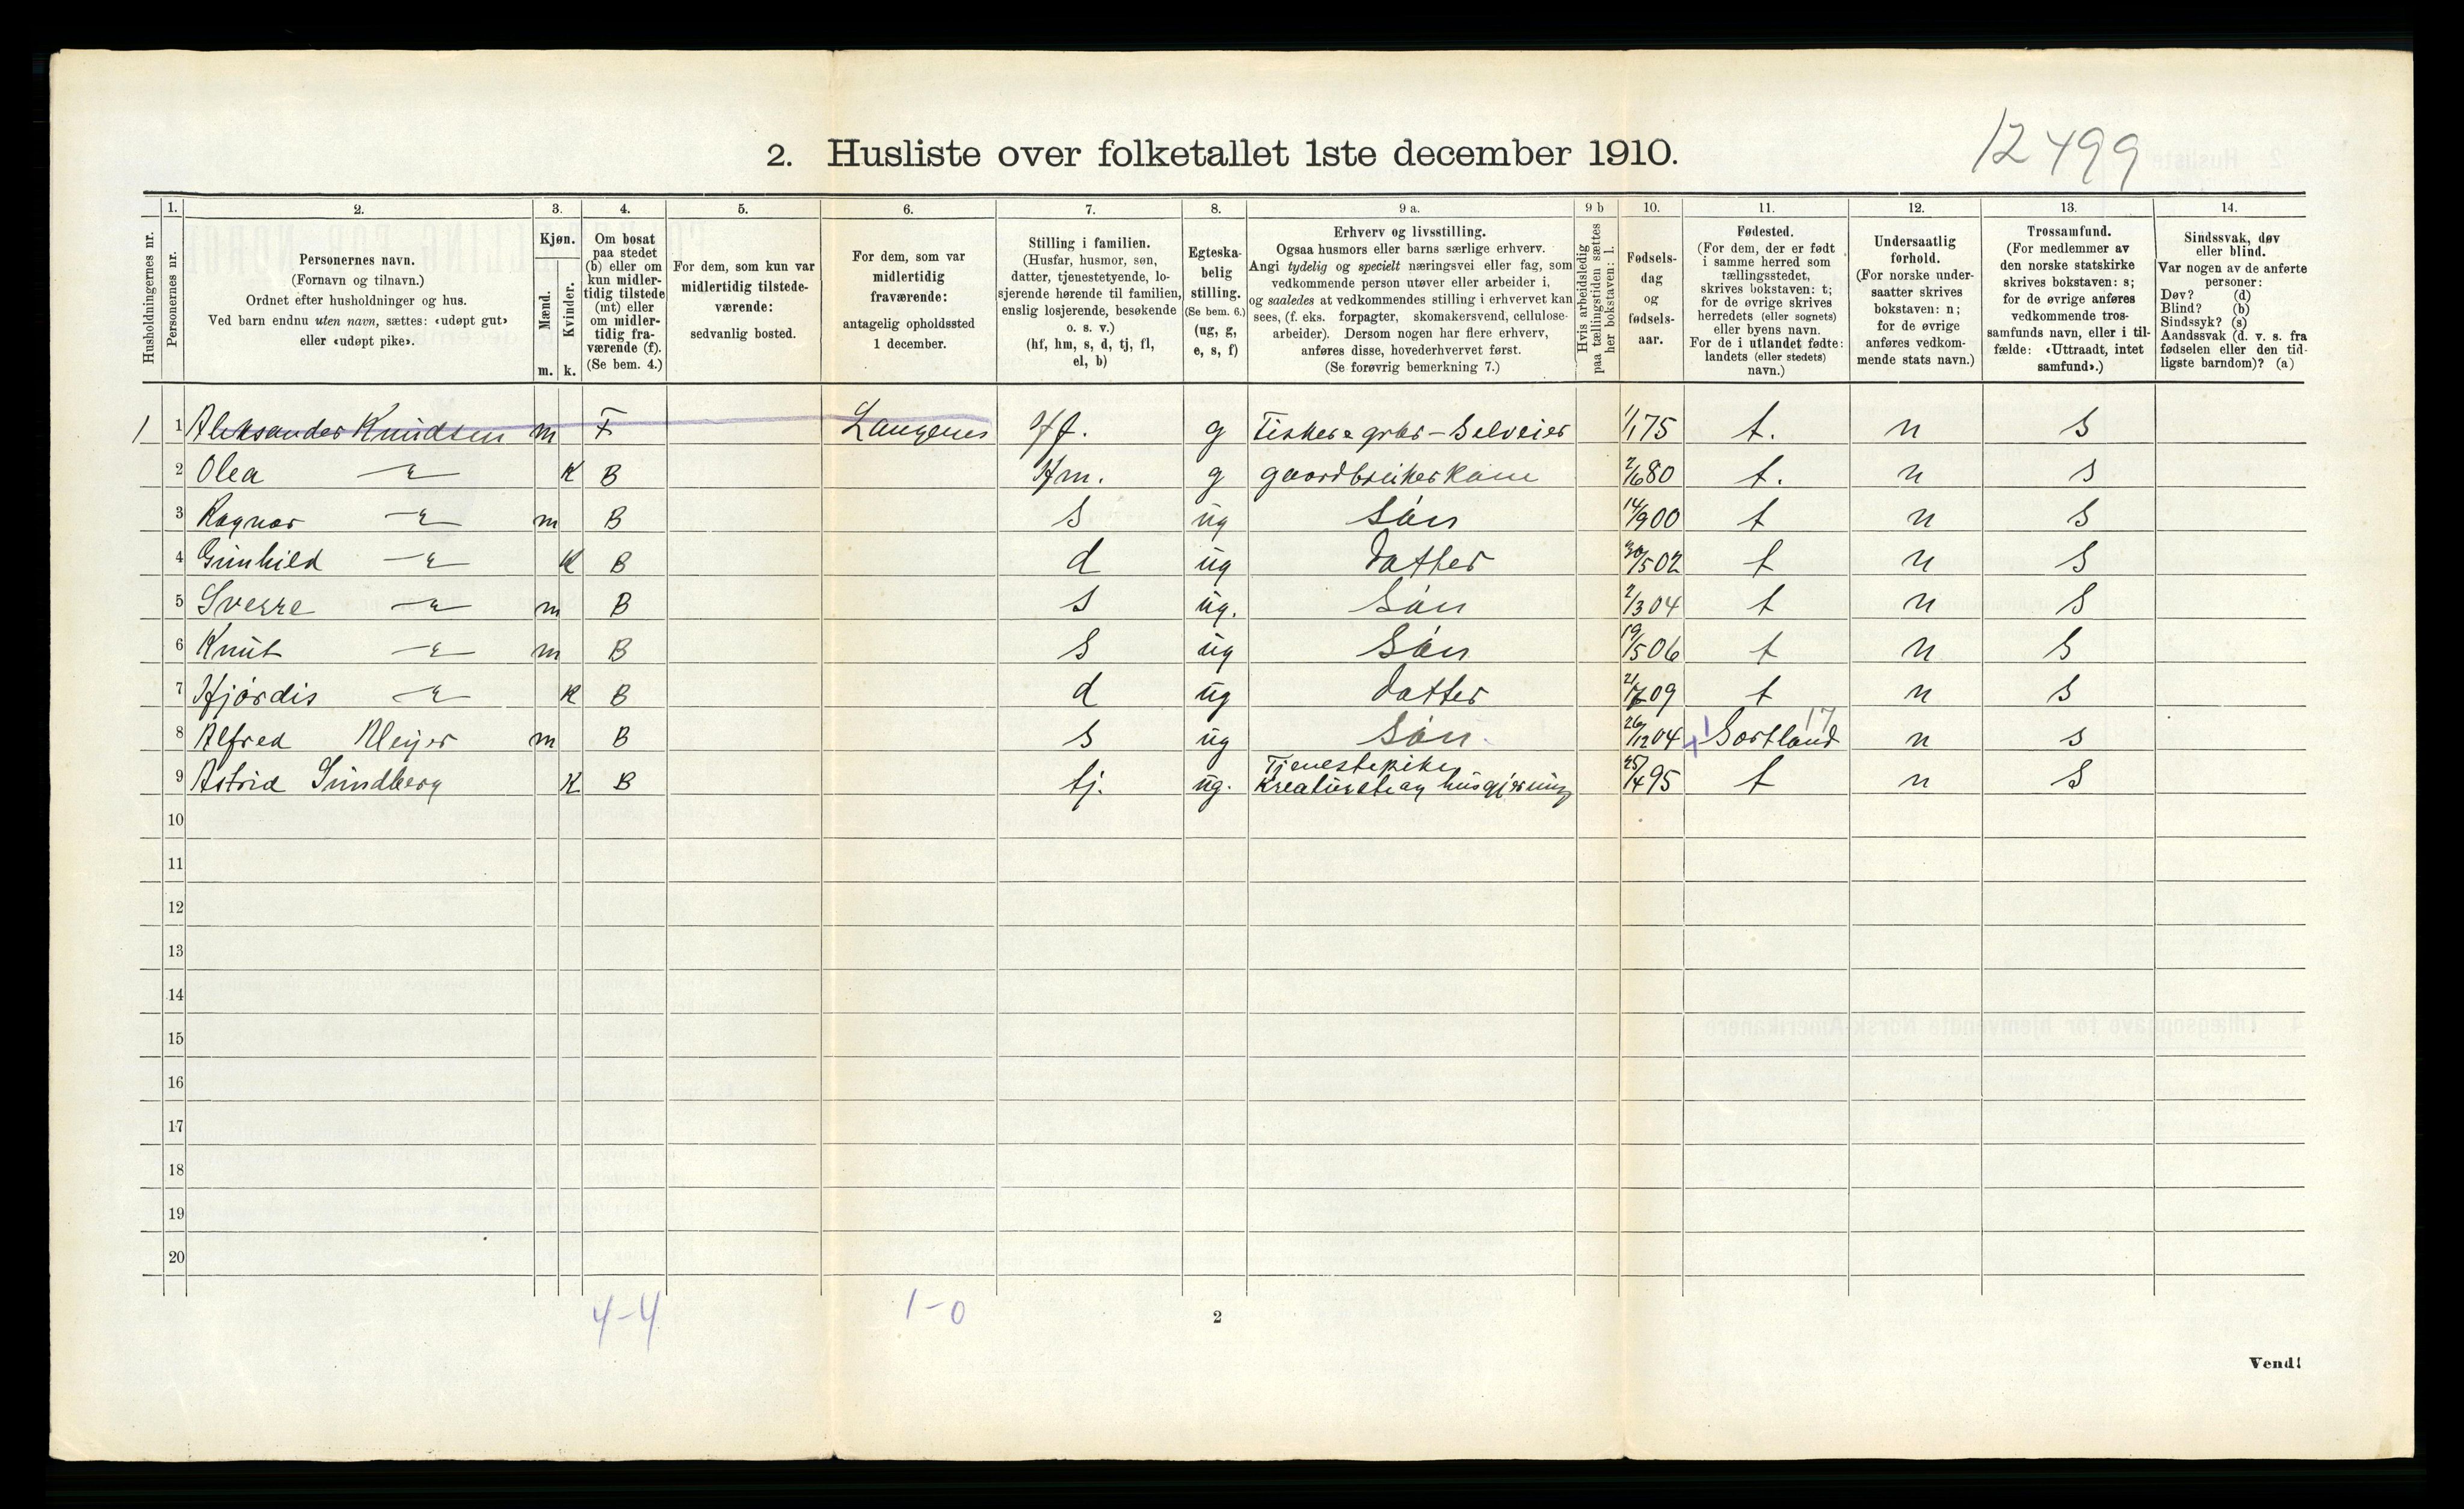 12499
2. Husliste over folketallet 1ste december 1910.
1. 2. 3. 4. 5. 6. 7. 8. 9 a. 9 b 10. 11. 12. 13. 14.
Husholdningernes nr.
Personernes nr.
Personernes navn.
(Fornavn og tilnavn.)
Ordnet efter husholdninger og hus.
Ved barn endnu uten navn, sættes: «udøpt gut»
eller «udøpt pike».
Kjøn.
Mænd.
Kvinder.
m. k.
Om bosat
paa stedet
(b) eller om
kun midler-
tidig tilstede
(mt) eller
om midler-
tidig fra-
værende (f).
(Se bem. 4.)
For dem, som kun var
midlertidig tilstede-
værende:
sedvanlig bosted.
For dem, som var
midlertidig
fraværende:
antagelig opholdssted
1 december.
Stilling i familien.
(Husfar, husmor, søn,
datter, tjenestetyende, lo-
sjerende hørende til familien,
enslig losjerende, besøkende
o. s. v.)
(hf, hm, s, d, tj, fl,
el, b)
Egteska-
belig
stilling.
(Se bem. 6.)
(ug, g,
e, s, f)
Erhverv og livsstilling.
Ogsaa husmors eller barns særlige erhverv.
Angi tydelig og specielt næringsvei eller fag, som
vedkommende person utøver eller arbeider i,
og saaledes at vedkommendes stilling i erhvervet kan
sees, (f. eks. forpagter, skomakersvend, cellulose-
arbeider). Dersom nogen har flere erhverv,
anføres disse, hovederhvervet først.
(Se forøvrig bemerkning 7.)
Hvis arbeidsledig
paa tællingstiden sættes
her bokstaven: l.
Fødsels-
dag
og
fødsels-
aar.
Fødested.
(For dem, der er født
i samme herred som
tællingsstedet,
skrives bokstaven: t;
for de øvrige skrives
herredets (eller sognets)
eller byens navn.
For de i utlandet fødte:
landets (eller stedets)
navn.)
Undersaatlig
forhold.
(For norske under-
saatter skrives
bokstaven: n;
for de øvrige
anføres vedkom-
mende stats navn.)
Trossamfund.
(For medlemmer av
den norske statskirke
skrives bokstaven: s;
for de øvrige anføres
vedkommende tros-
samfunds navn, eller i til-
fælde: «Uttraadt, intet
samfund».)
Sindssvak, døv
eller blind.
Var nogen av de anførte
personer:
Døv? (d)
Blind? (b)
Sindssyk? (s)
Aandssvak (d. v. s. fra
fødselen eller den tid-
ligste barndom)? (a)
1 1 Aleksander Knudsen m F Langenes Hf. g Fisker & grbr - Selveier 1/1 75 t. n S
2 Olea K B Hm. g gaardbruker kone 2/6 80 t. n S
3 Ragnar m B S ug Søn 14/9 00 t n S
4 Gunhild K B d ug datter 30/5 02 t n S
5 Sverre m B S ug. Søn 2/3 04 t n S
6 Knut m B S ug Søn 19/5 06 t n S
7 Hjørdis K B d ug datter 21/7 09 t n S
17
8 Alfred Meyer m B S ug Søn 26/12 04 Sortland n s
9 Astrid Sundberg K B tj. ug. Tjenestepike
Kreaturst. og husgjerning 25/4 95 t n S
10
11
12
13
14
15
16
17
18
19
20
4-4 1-0
2
Vend!